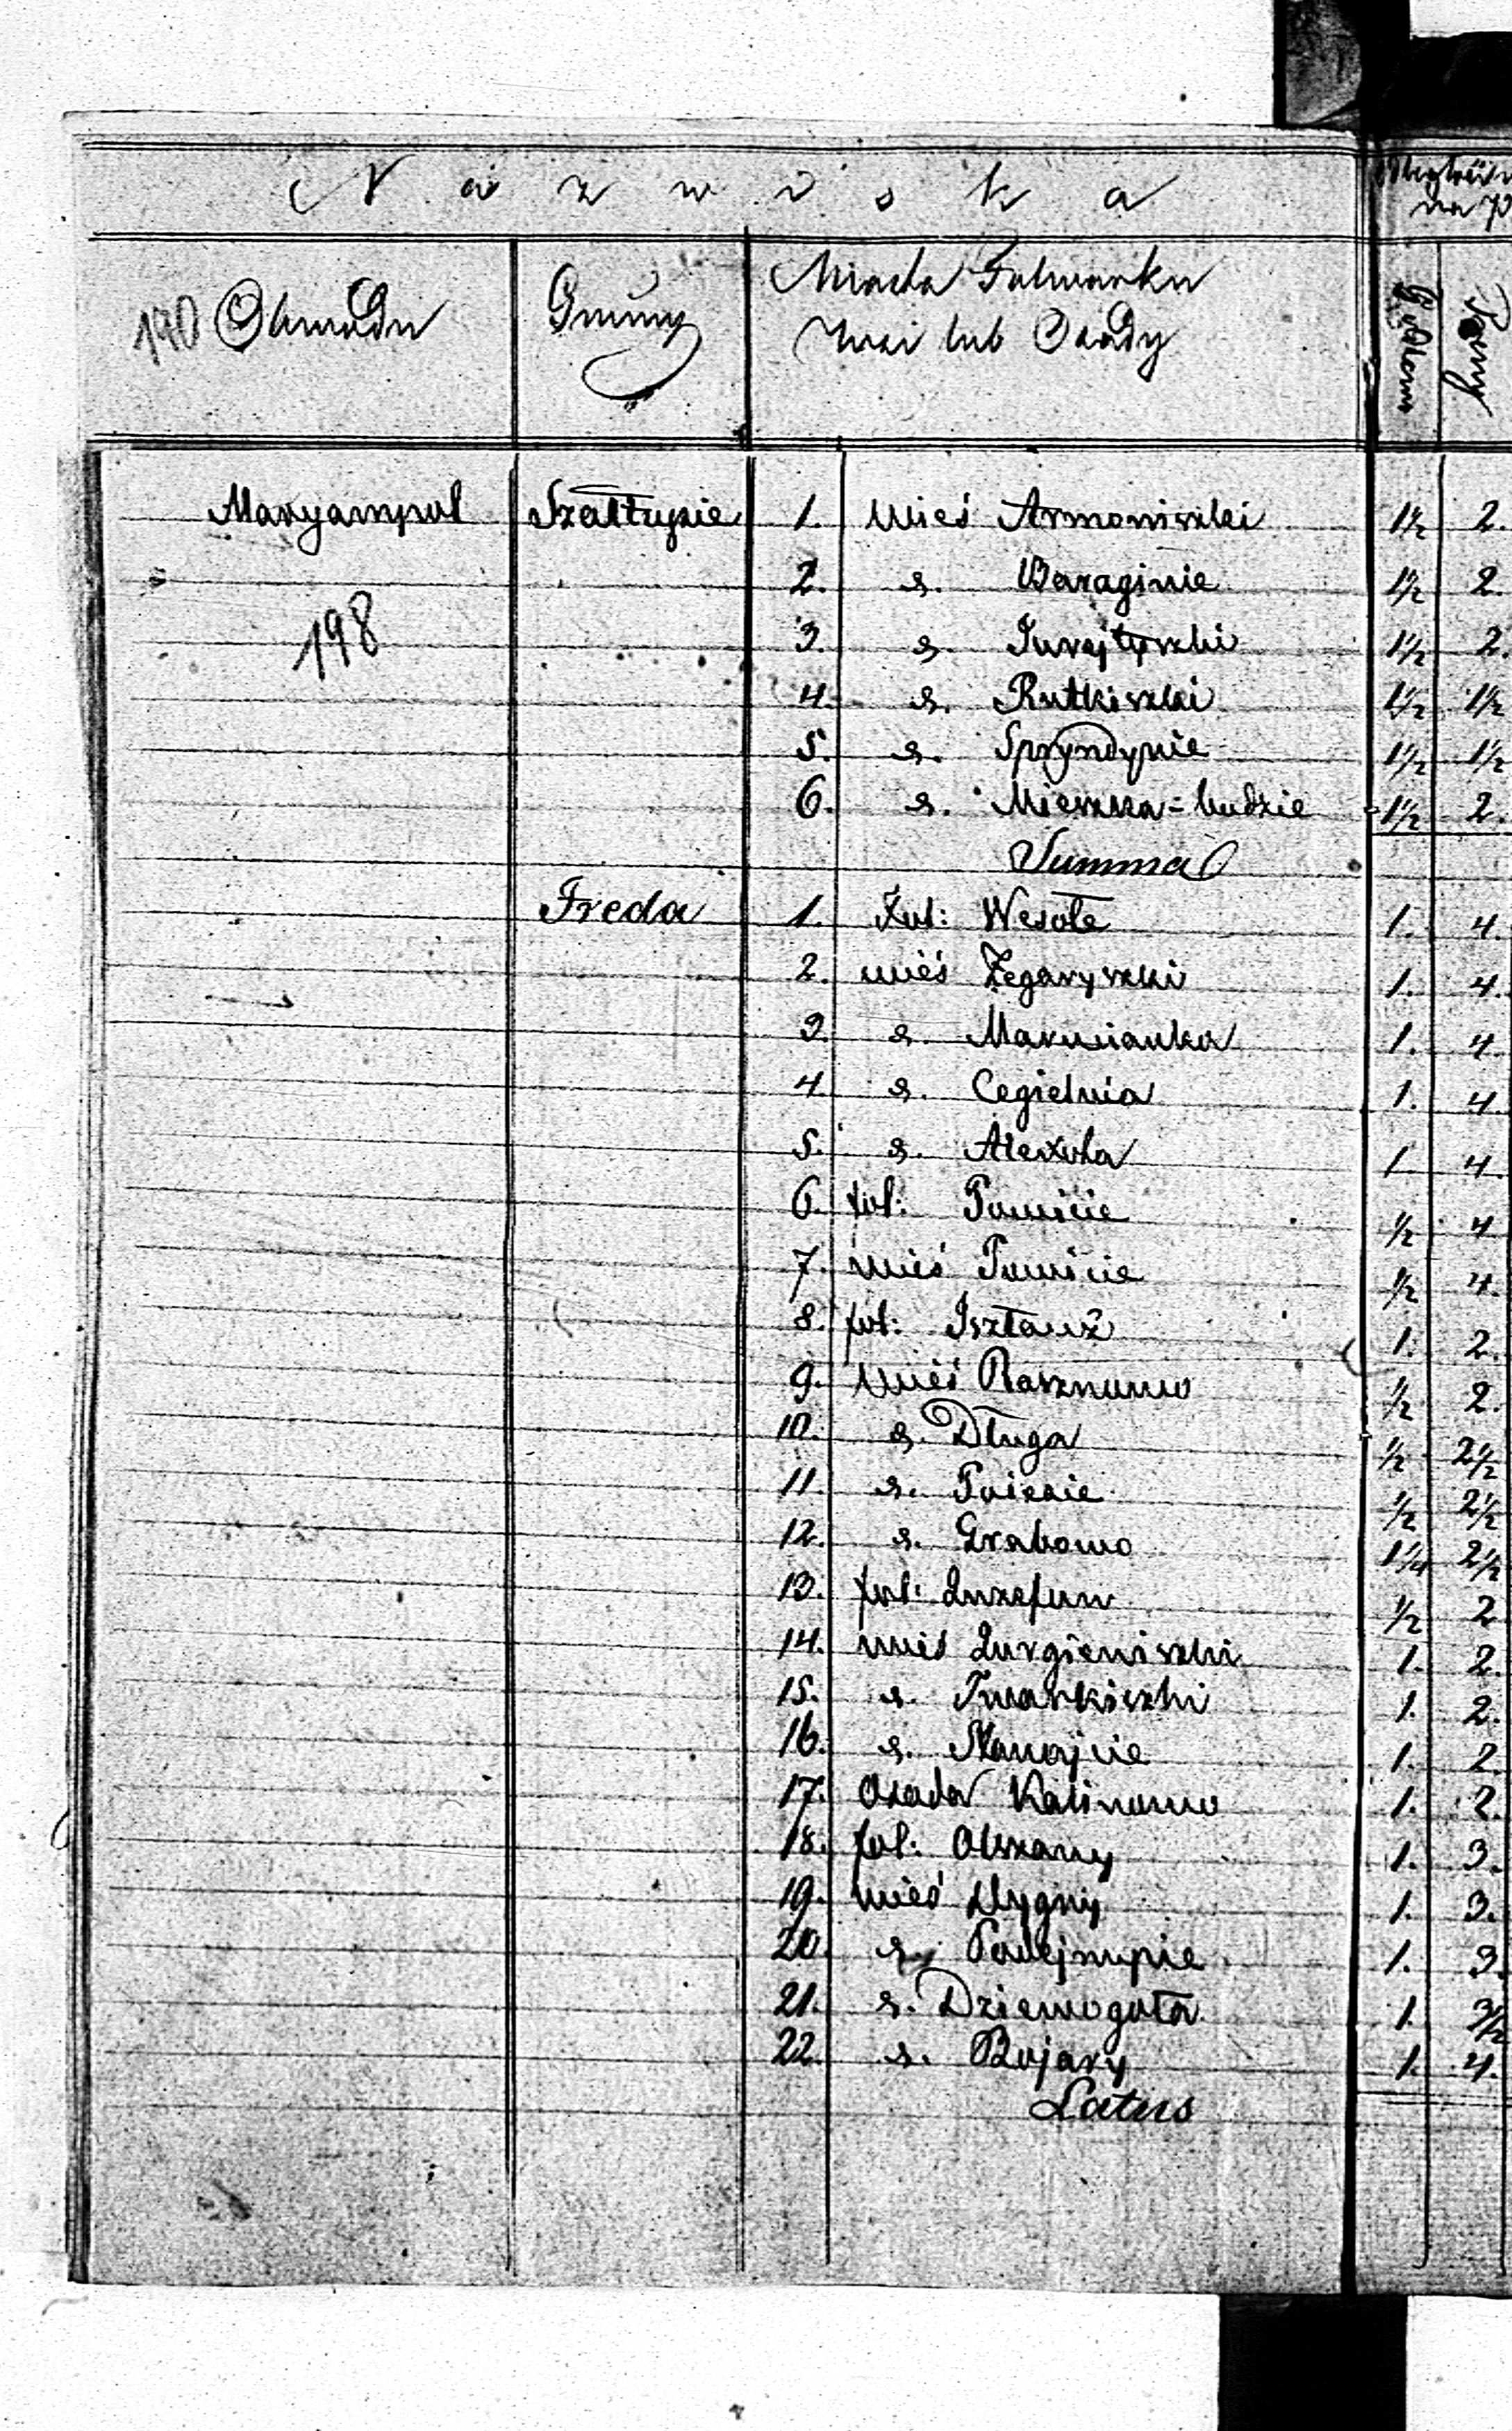 Nazwiska
Odległość
na
190 Obwodu Gminy Miasta Folwarku
Wsi lub Osady
Maryampol Szałtupie 1. Wieś Armoniszki 1½ 2.
2. s. Baraginie 1½ 2.
198
3. s. Jurajtyszki 1½ 2.
4. s. Rutkiszki 1½ 1½
5. s. Spryndynie 1½ 1½
6. s. Mieszka=budzie 1½ 2.
Summa
Freda 1. Fol: Wesołe 1. 4.
2. wieś Żegaryszki 1. 4.
3. s. Marwianka 1. 4.
4. s. Cegielnia 1. 4.
5. s. Alexota 1. 4.
6. fol: Poniewie ½ 4
7. wieś ½ 4.
8. fol: Isztauż 1. 2.
9. wieś Rasznowo ½ 2.
10. s. Długa ½ 2½
11. s. ½ 2½
12. s. Grabowo 1¼ 2½
13. fol: Juzefow ½ 2
14. wieś Jurgieniszki 1. 2.
15. s. Twarkiszki 1. 2.
16. s. 1. 2.
17. Osada Kalinowo 1. 2.
18. fol: Olszany 1. 3.
19. wieś Dygry 1. 3.
20. s. Powejnupie 1. 3.
21. s. Dziewogoła 1. 3½
22. s. Bojary 1. 4.
Latus